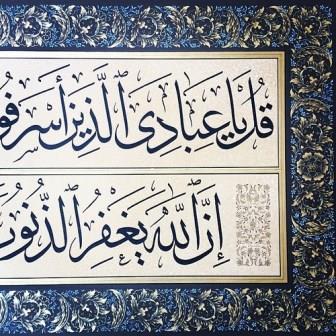 قل يا عبادي الذين أسرفو
إن الله يغفر الذنوب